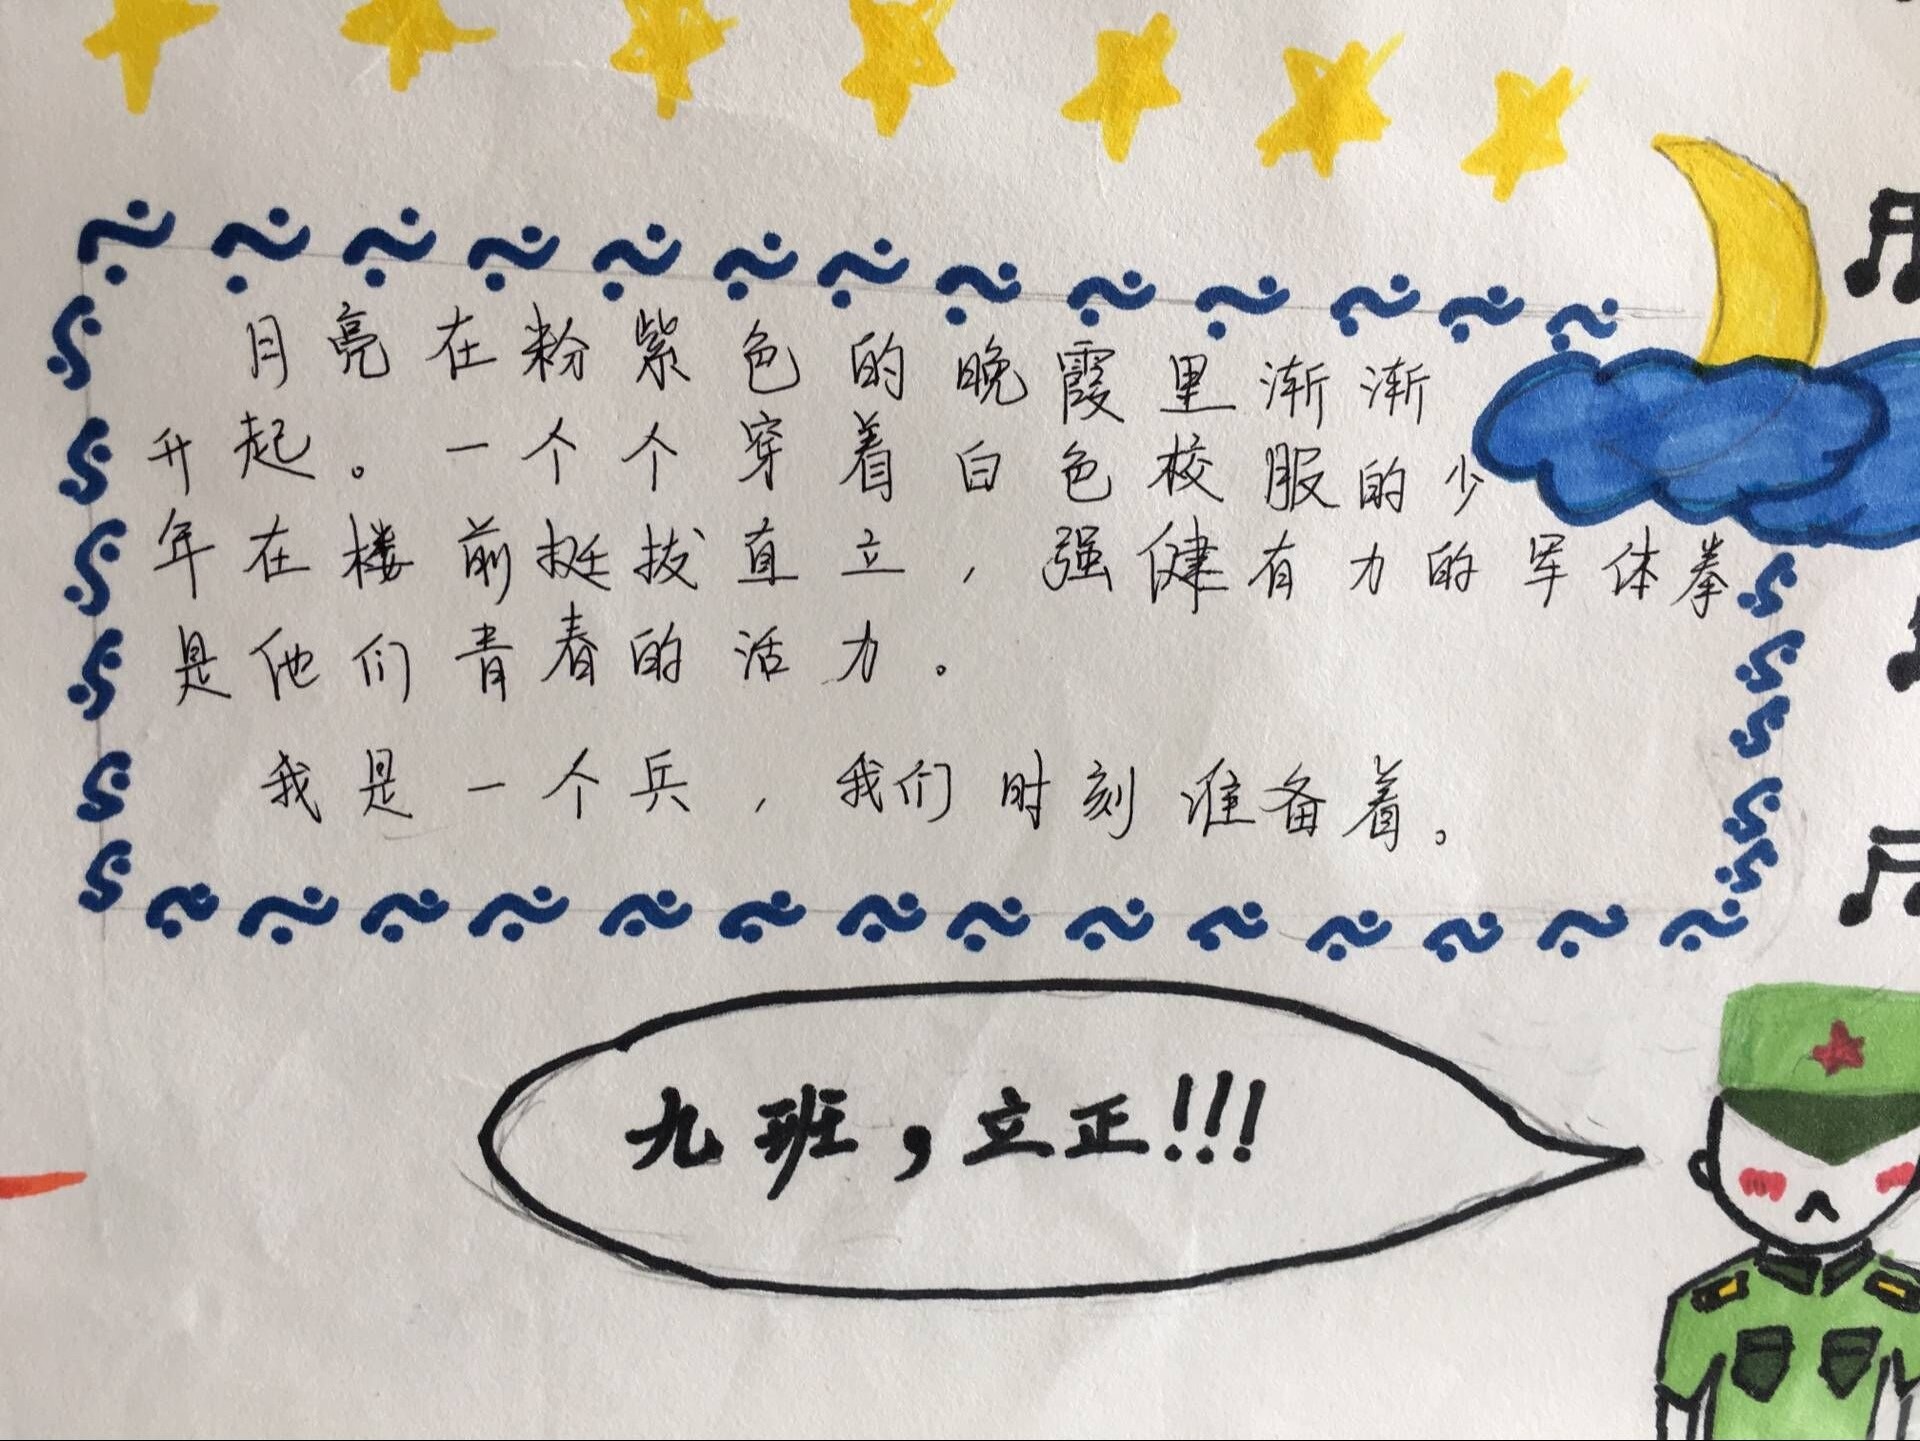 月亮在粉紫色的晚霞里渐渐
升起。一个个穿着白色校服的少
年在楼前挺拔直立,强健有力的军体拳
是他们青春的活力。
我是一个兵,我们时刻准备着。
九班,立正!!!